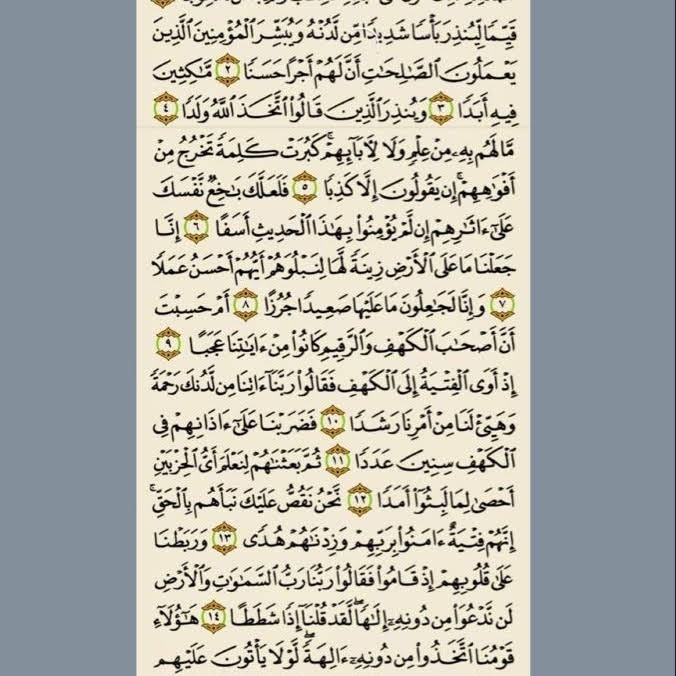 قَيِّمًا لِّيُنذِرَ بَأْسًا شَدِيدًا مِّن لَّدُنْهُ وَيُبَشِّرَ الْمُؤْمِنِينَ الَّذِينَ
يَعْمَلُونَ الصَّالِحَاتِ أَنَّ لَهُمْ أَجْرًا حَسَنًا ٢ مَّاكِثِينَ
فِيهِ أَبَدًا ٣ وَيُنذِرَ الَّذِينَ قَالُوا اتَّخَذَ اللَّهُ وَلَدًا ٤
مَّا لَهُم بِهِ مِنْ عِلْمٍ وَلَا لِآبَائِهِمْ ۚ كَبُرَتْ كَلِمَةً تَخْرُجُ مِنْ
أَفْوَاهِهِمْ ۚ إِن يَقُولُونَ إِلَّا كَذِبًا ٥ فَلَعَلَّكَ بَاخِعٌ نَّفْسَكَ
عَلَىٰ آثَارِهِمْ إِن لَّمْ يُؤْمِنُوا بِهَٰذَا الْحَدِيثِ أَسَفًا ٦ إِنَّا
جَعَلْنَا مَا عَلَى الْأَرْضِ زِينَةً لَّهَا لِنَبْلُوَهُمْ أَيُّهُمْ أَحْسَنُ عَمَلًا
٧ وَإِنَّا لَجَاعِلُونَ مَا عَلَيْهَا صَعِيدًا جُرُزًا ٨ أَمْ حَسِبْتَ
أَنَّ أَصْحَابَ الْكَهْفِ وَالرَّقِيمِ كَانُوا مِنْ آيَاتِنَا عَجَبًا ٩
إِذْ أَوَى الْفِتْيَةُ إِلَى الْكَهْفِ فَقَالُوا رَبَّنَا آتِنَا مِن لَّدُنكَ رَحْمَةً
وَهَيِّئْ لَنَا مِنْ أَمْرِنَا رَشَدًا ١٠ فَضَرَبْنَا عَلَىٰ آذَانِهِمْ فِي
الْكَهْفِ سِنِينَ عَدَدًا ١١ ثُمَّ بَعَثْنَاهُمْ لِنَعْلَمَ أَيُّ الْحِزْبَيْنِ
أَحْصَىٰ لِمَا لَبِثُوا أَمَدًا ١٢ نَّحْنُ نَقُصُّ عَلَيْكَ نَبَأَهُم بِالْحَقِّ ۚ
إِنَّهُمْ فِتْيَةٌ آمَنُوا بِرَبِّهِمْ وَزِدْنَاهُمْ هُدًى ١٣ وَرَبَطْنَا
عَلَىٰ قُلُوبِهِمْ إِذْ قَامُوا فَقَالُوا رَبُّنَا رَبُّ السَّمَاوَاتِ وَالْأَرْضِ
لَن نَّدْعُوَ مِن دُونِهِ إِلَٰهًا ۖ لَّقَدْ قُلْنَا إِذًا شَطَطًا ١٤ هَٰؤُلَاءِ
قَوْمُنَا اتَّخَذُوا مِن دُونِهِ آلِهَةً ۖ لَّوْلَا يَأْتُونَ عَلَيْهِم